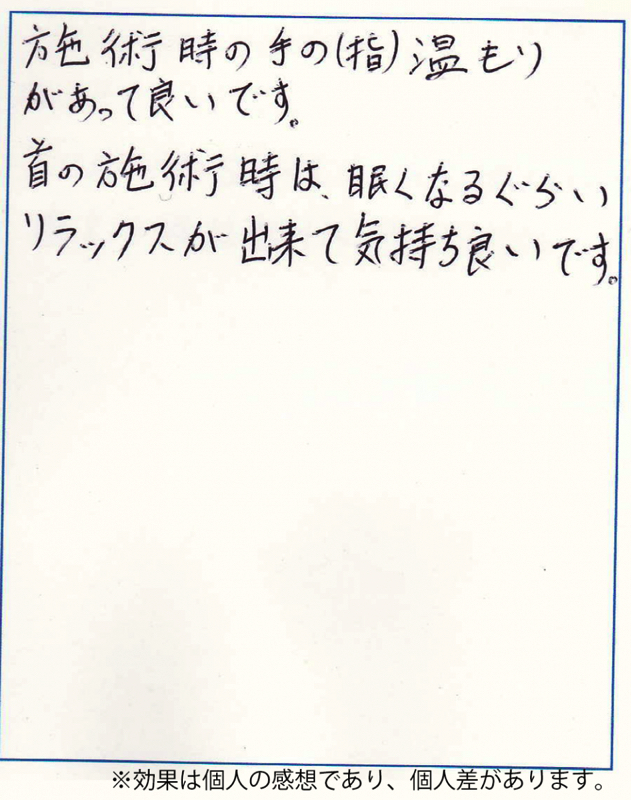 施術時の手の(指)温もり
があって良いです。
首の施術時は、眠くなるぐらい
リラックスが出来て気持ち良いです。
※効果は個人の感想であり、個人差があります。